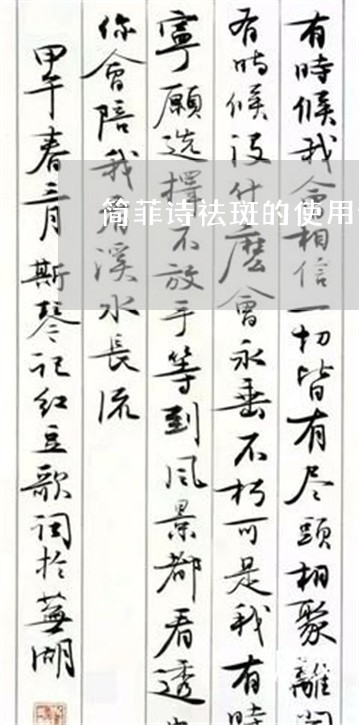 有時候我会相信一切皆有尽頭相聚離開
有時候没什麽會永垂不朽可是我有時
寧願选擇不放手等到风景都看透
你會陪我看溪水長流
甲午春三月斯琴记红豆歌词於蕪湖
简菲诗祛斑的使用